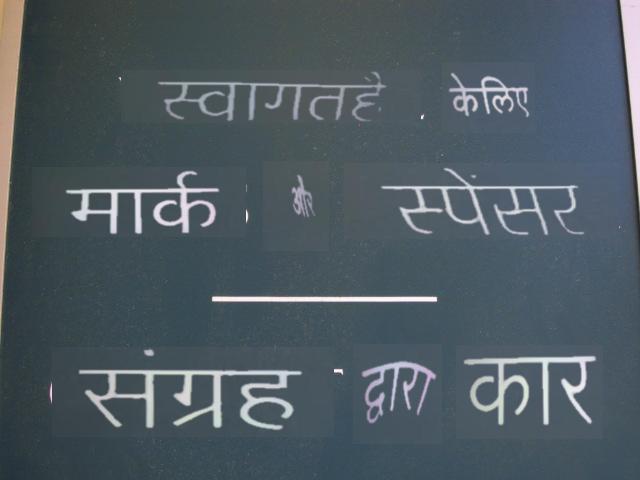 स्वागतहै केलिए
मार्क और स्पेंसर
संग्रह द्वारा कार